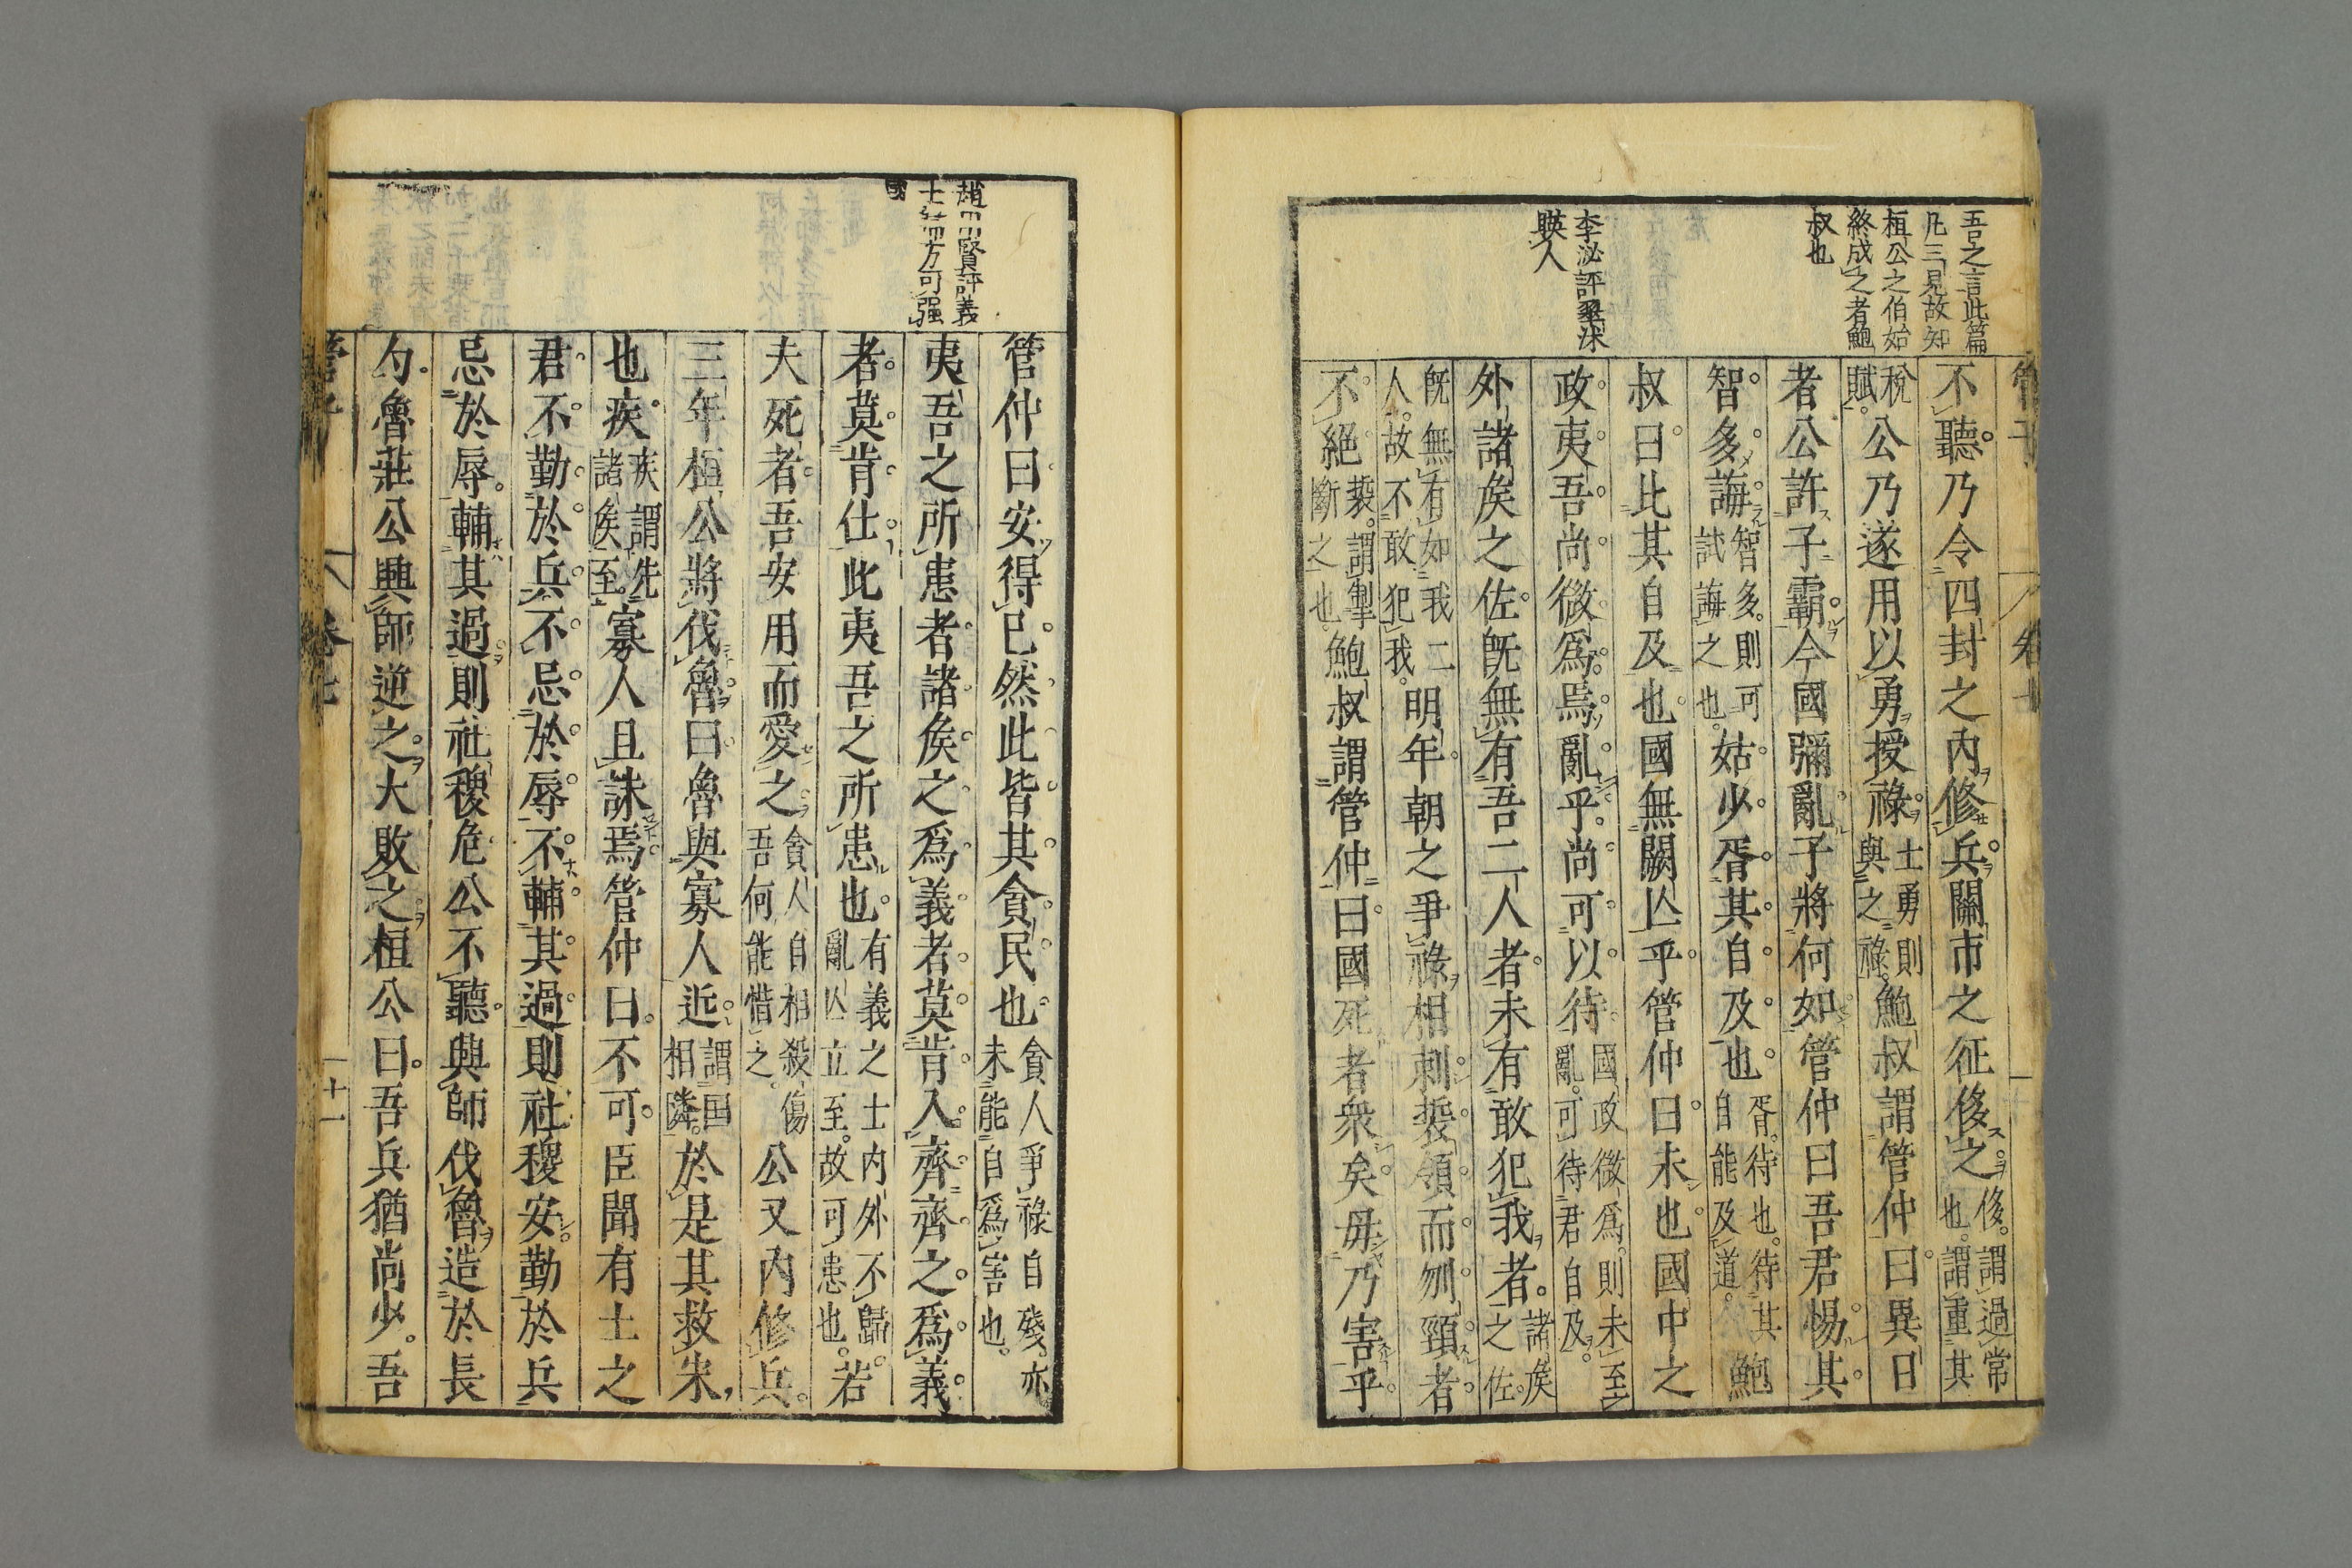 吾之言此篇
凡三見故知
桓公之伯始
終成之者鮑
叔也
李泌評舉沫
䀹人
管子
卷七
不聽乃令四封之內修兵關市之征侈之侈謂過常
也謂重其
稅
賦公乃遂用以勇授祿士勇則
與之祿鮑叔謂管仲曰異日
者公許子霸今國彌亂子將何如管仲曰吾君惕其
智多誨智多則可
試誨之也姑少胥其自及也胥待也待其
自能及道鮑
叔曰比其自及也國無闕亾乎管仲曰未也國中之
政夷吾尚微爲焉亂乎尚可以待國政微爲則未至
亂可待君自及
外諸侯之佐旣無有吾二人者未有敢犯我者諸侯
之佐
旣無有如我二
人故不敢犯我明年朝之爭祿相刺裚領而刎頸者
不絕裚謂掣
斷之也鮑叔謂管仲曰國死者衆矣毋乃害乎
趙用賢評義
士歸方可强
國
管仲曰安得已然此皆其貪民也貪人爭祿自殘亦
未能自爲害也
夷吾之所患者諸侯之爲義者莫肯入齊齊之爲義
者莫肯仕此夷吾之所患也有義之士內外不歸
亂亾立至故可患也若
夫死者吾安用而愛之貪人自相殺傷
吾何能惜之公又內修兵
三年桓公將伐魯曰魯與寡人近謂国
相隣於是其救宋
也疾疾謂先
諸侯至寡人且誅焉管仲曰不可臣聞有土之
君不勤於兵不忌於辱不輔其過則社稷安勤於兵
忌於辱輔其過則社稷危公不聽興師伐魯造於長
勺魯莊公興師逆之大敗之桓公曰吾兵猶尚少吾
管子
卷七
十一